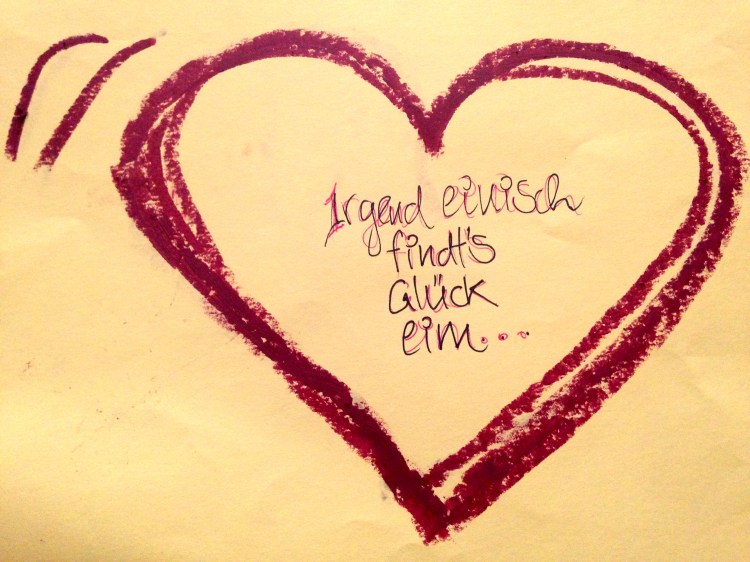 Irgend einisch
findt's
Glück
eim...